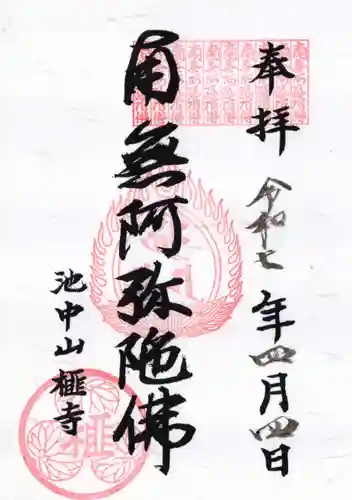 奉拝
令和七年四月四日
南無阿弥陀佛
池中山 榧寺
榧